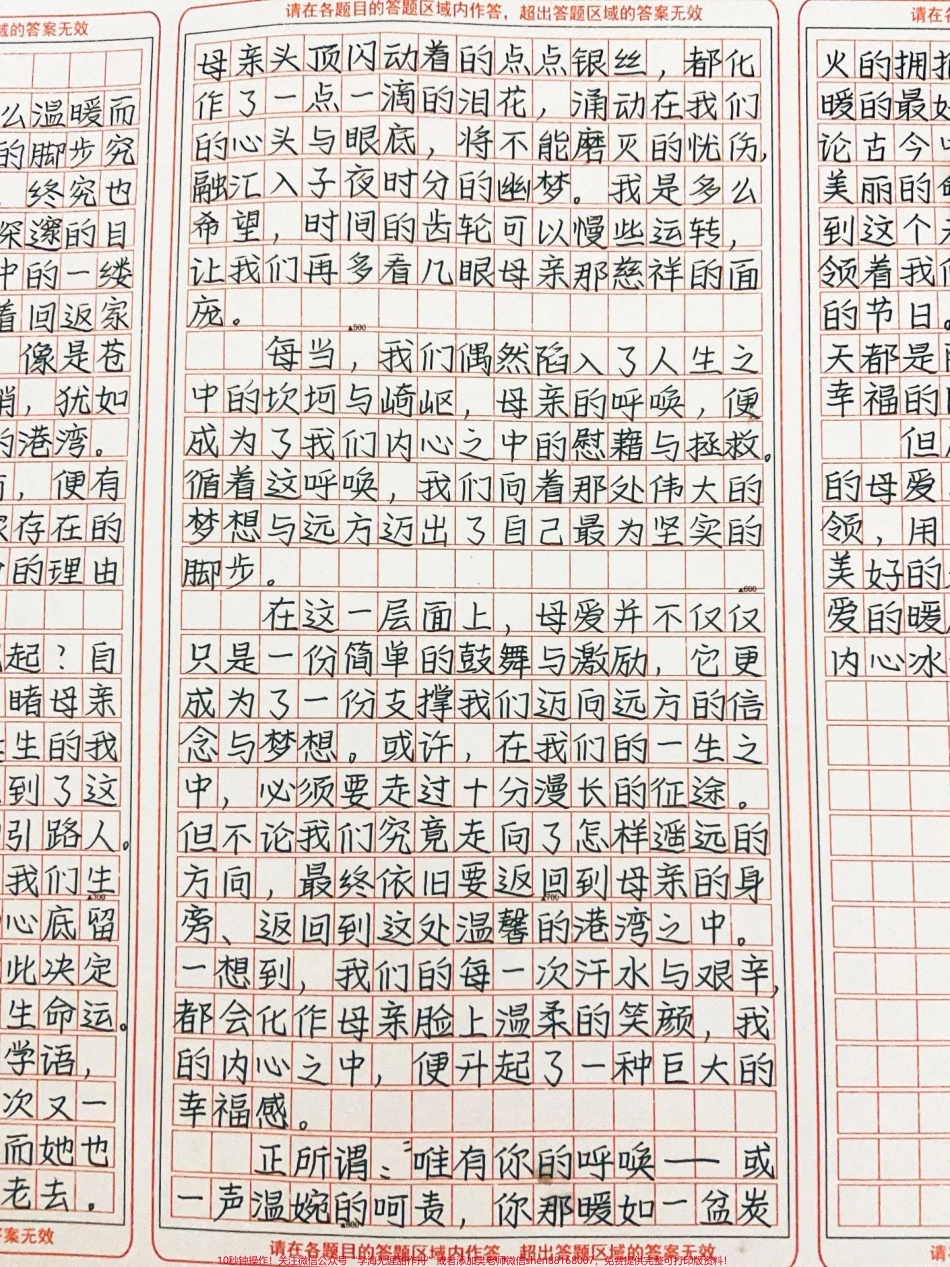 域的答案无效
么温暖而
的脚步究
终究也
深邃的目
中的一缕
着回返家
像是苍
，犹如
的港湾。
，便有
存在的
的理由
起？自
睹母亲
生的我
到了这
引路人。
我们生
▲300
心底留
此决定
生命运。
学语，
次又一
而她也
老去。
答案无效
请在各题目的答题区域内作答，超出答题区域的答案无效
母亲头顶闪动着的点点银丝，都化
作了一点一滴的泪花，涌动在我们
的心头与眼底，将不能磨灭的忧伤，
融汇入子夜时分的幽梦。我是多么
希望，时间的齿轮可以慢些运转，
让我们再多看几眼母亲那慈祥的面
庞。
▲500
每当，我们偶然陷入了人生之
中的坎坷与崎岖，母亲的呼唤，便
成为了我们内心之中的慰藉与拯救。
循着这呼唤，我们向着那处伟大的
梦想与远方迈出了自己最为坚实的
脚步。
▲600
在这一层面上，母爱并不仅仅
只是一份简单的鼓舞与激励，它更
成为了一份支撑我们迈向远方的信
念与梦想。或许，在我们的一生之
中，必须要走过十分漫长的征途。
但不论我们究竟走向了怎样遥远的
方向，最终依旧要返回到母亲的身
▲700
旁、返回到这处温馨的港湾之中。
一想到，我们的每一次汗水与艰辛，
都会化作母亲脸上温柔的笑颜，我
的内心之中，便升起了一种巨大的
幸福感。
正所谓：“唯有你的呼唤——或
一声温婉的呵责，你那暖如一盆炭
▲800
请在各题目的答题区域内作答，超出答题区域的答案无效
请在各
火的拥抱
暖的最好
论古今中
美丽的
到这个
领着我们
的节日。
天都是
幸福的
但
的母爱
领，用
美好的
爱的暖
内心冰
请在
10秒钟操作！关注微信公众号“学海无涯甜作舟” 或者添加吴老师微信shen88168007，免费提供完整可打印版资料！